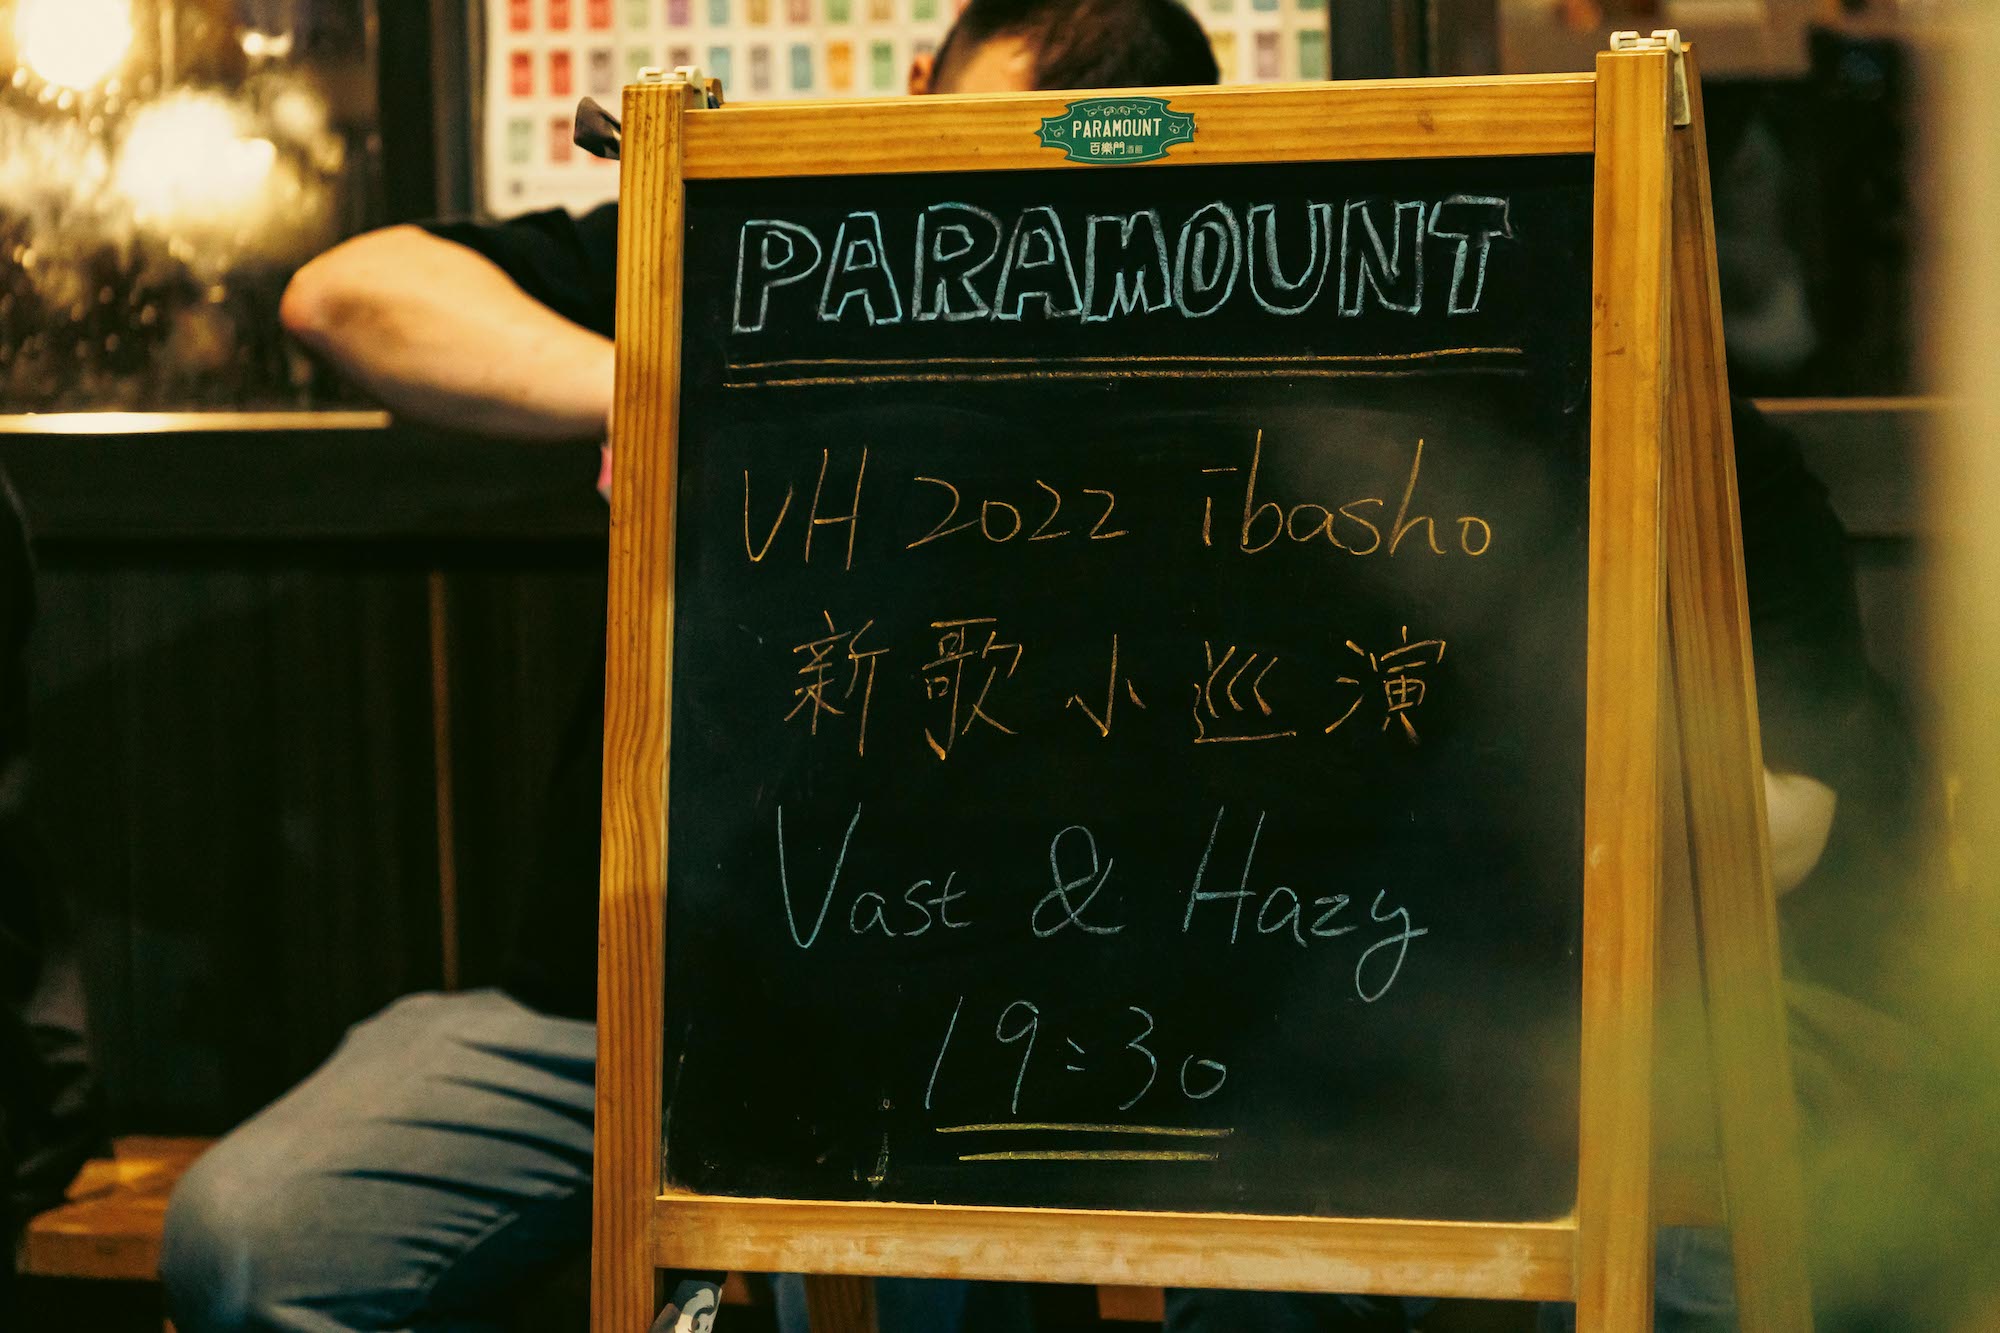 PARAMOUNT
百樂門酒館
PARAMOUNT
VH 2022 ibasho
新歌小巡演
Vast & Hazy
19:30